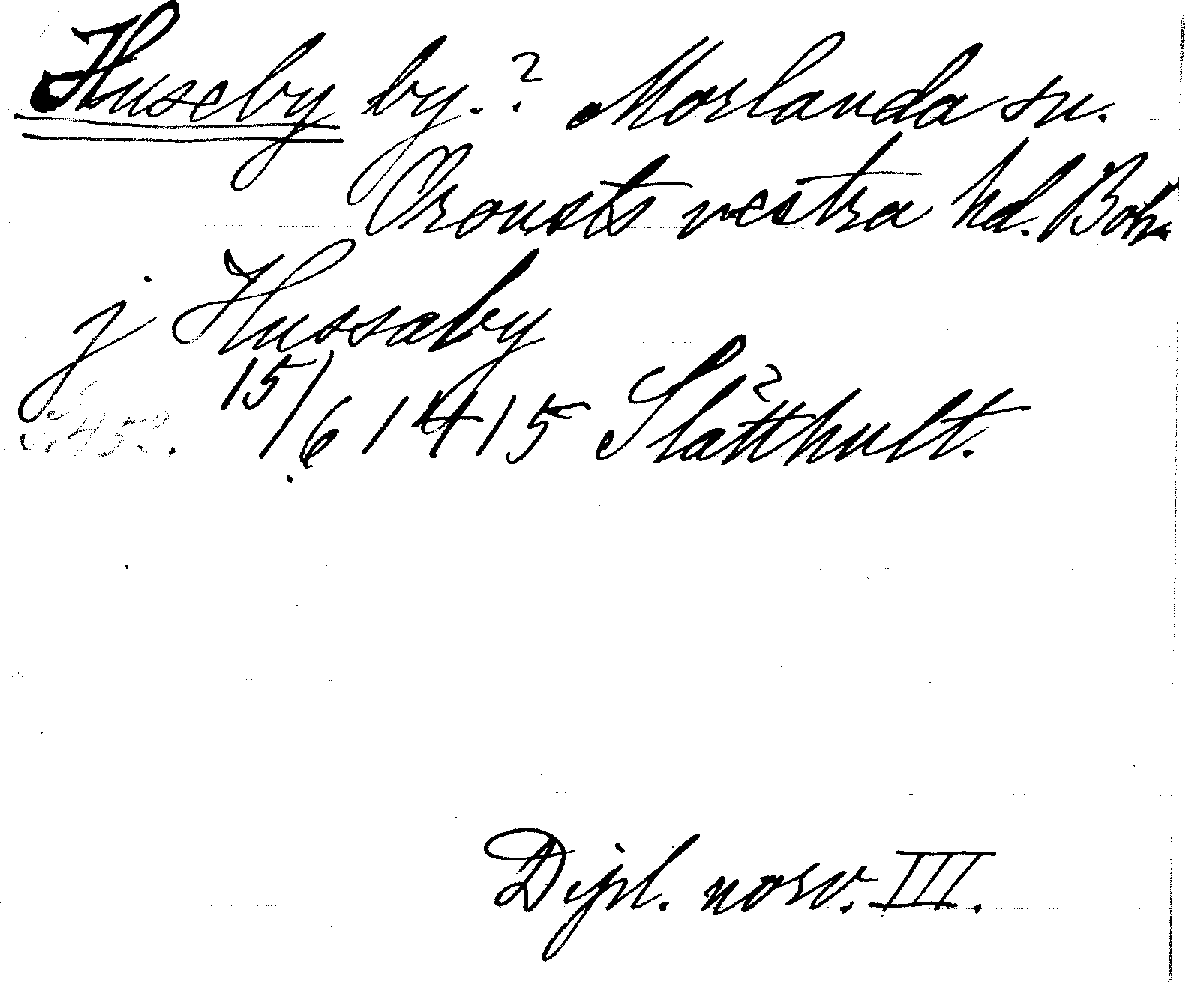 Huseby by.? Morlanda sn.
Orousts vestra hd. Boh.
j Hussaby
15/6 1415 Slåtthult.
S. 453.
Dipl. norv. III.